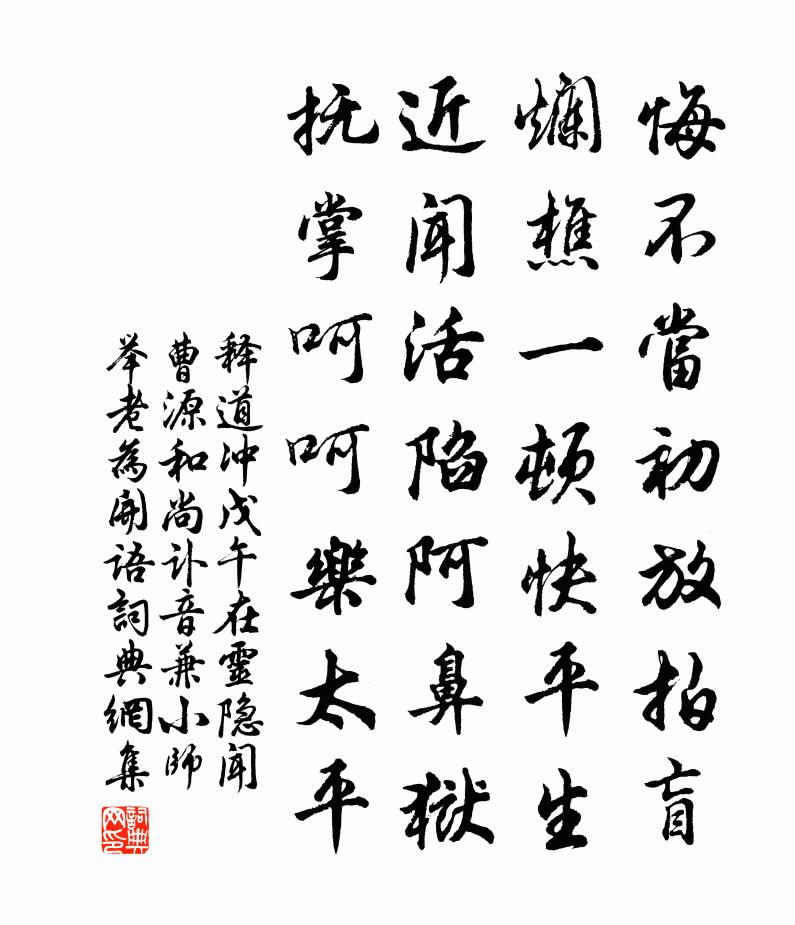 悔不當初放拍盲
爛樵一頓快平生
近闻活陷阿鼻獄
抚掌呵呵樂太平
释道冲戊午在靈隐闻
曹源和尚讣音兼小師
举老為開語詞典網集
詞典网印